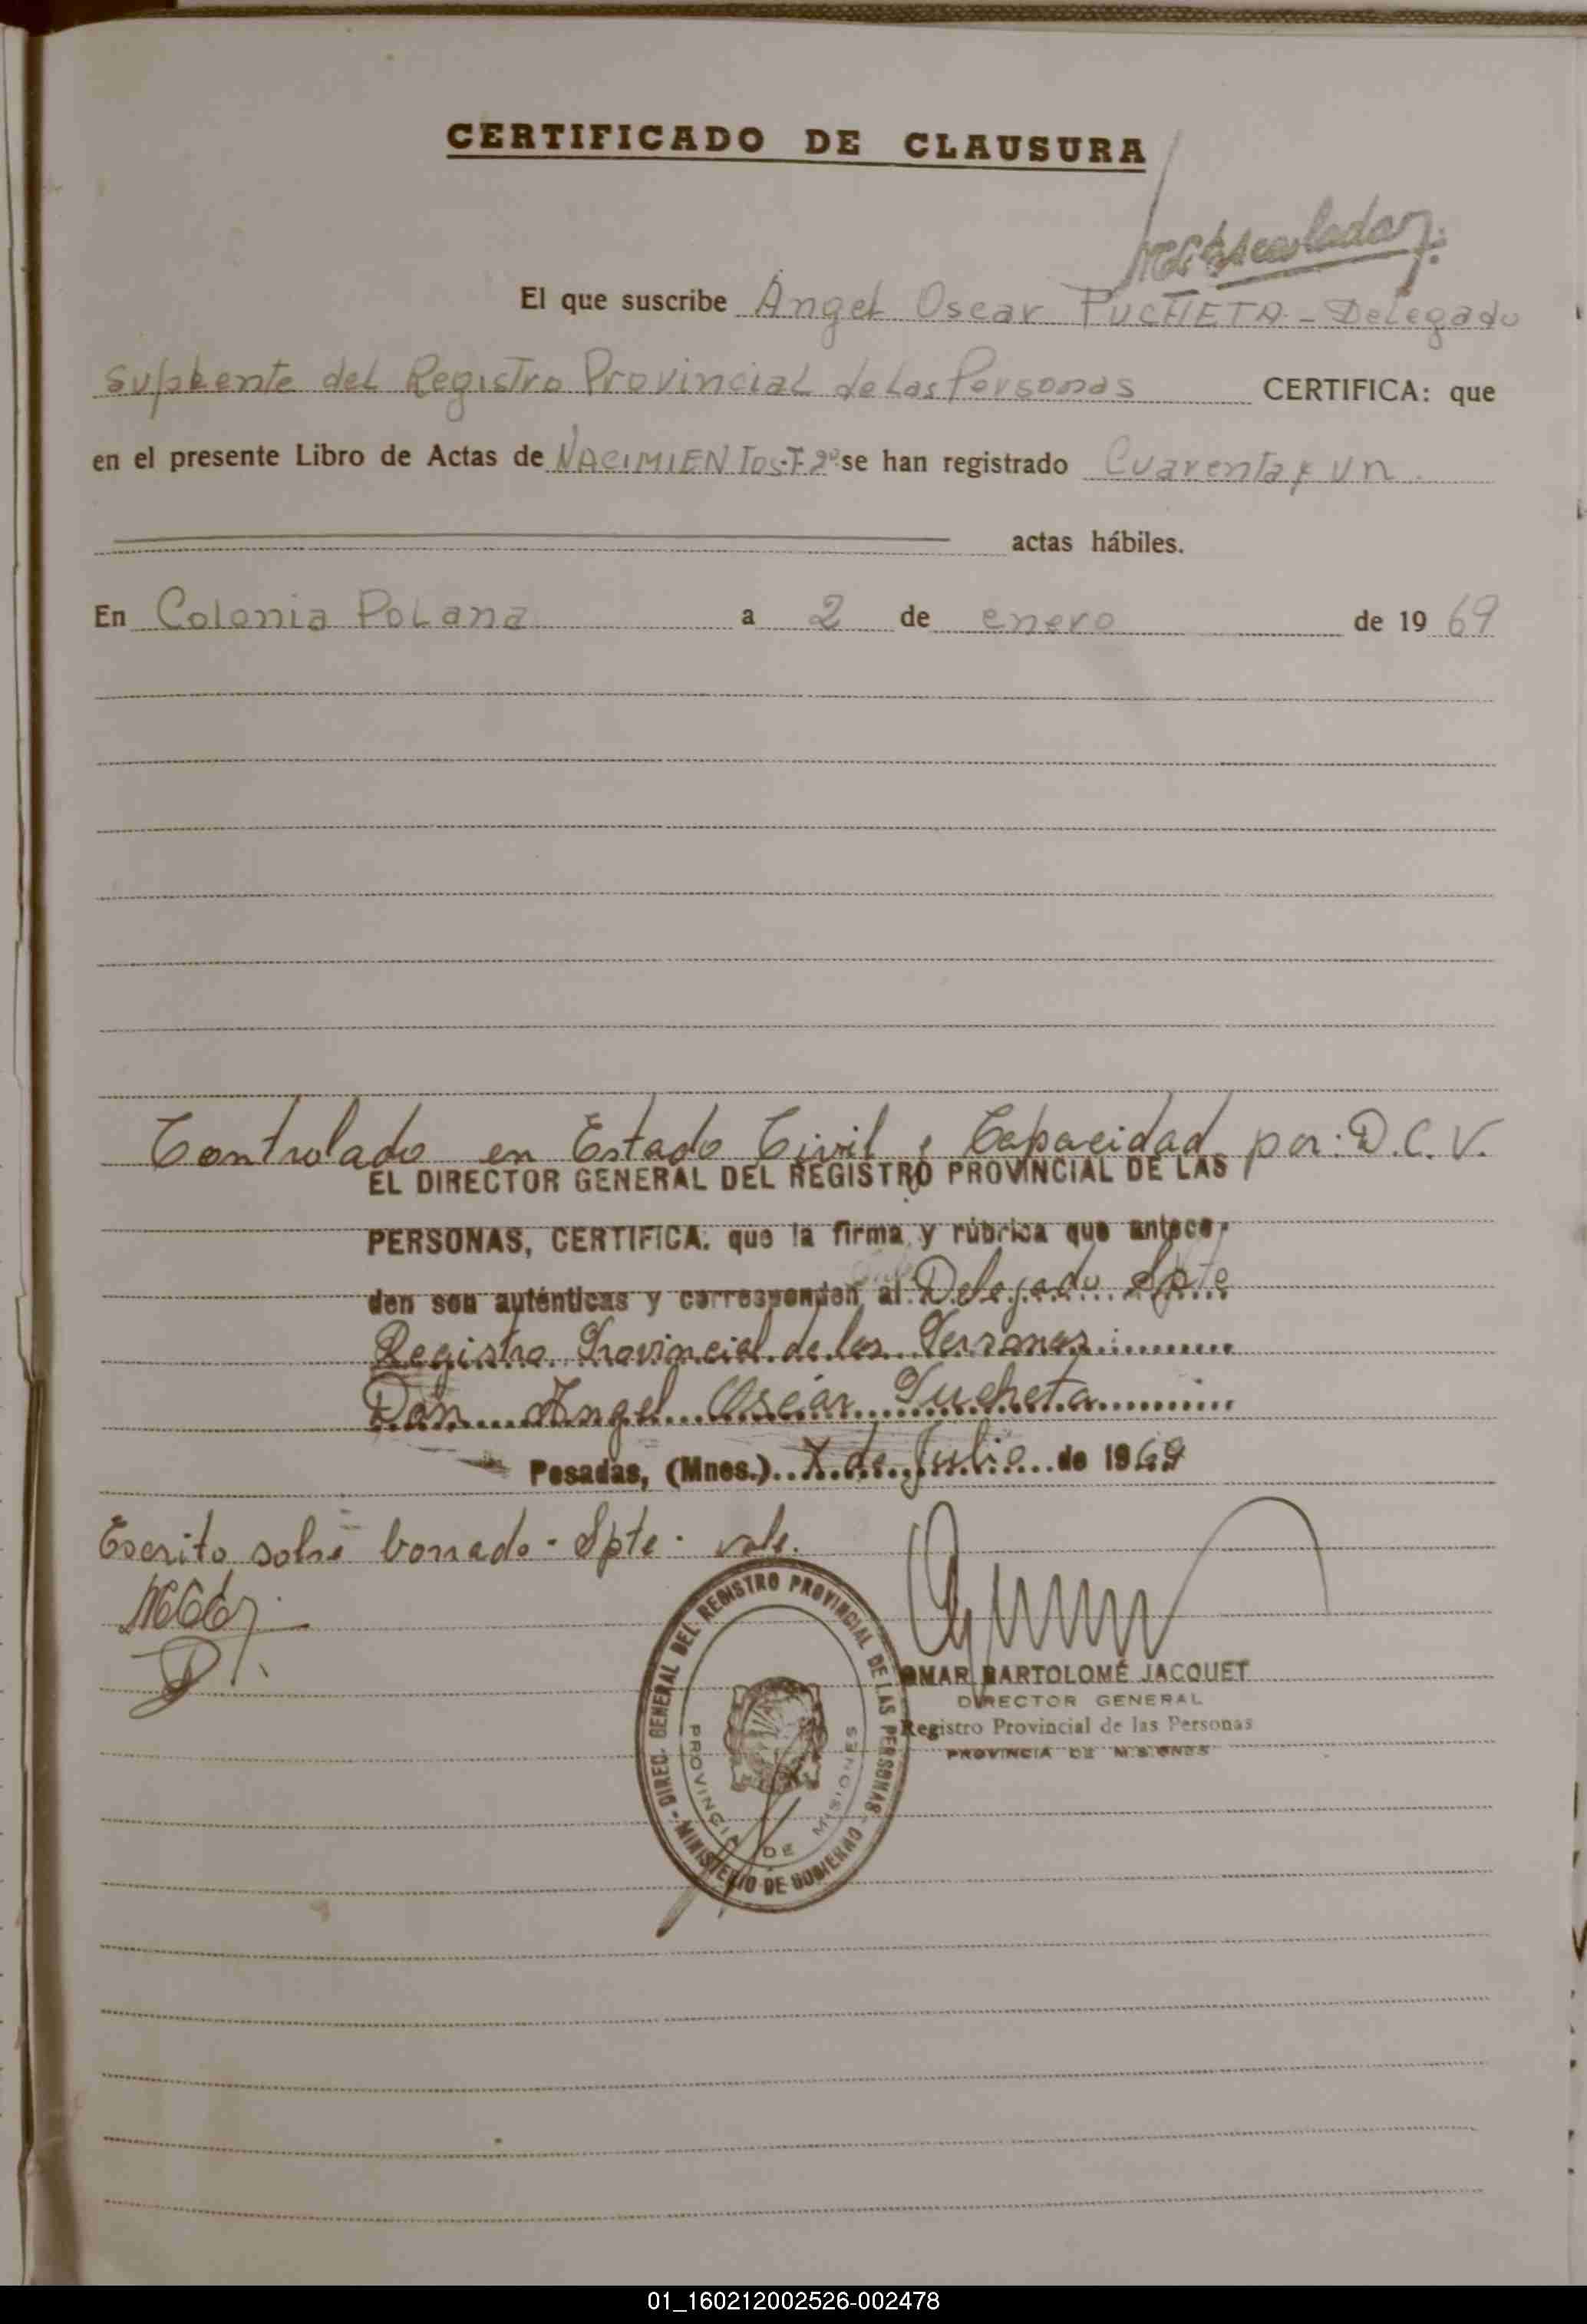 CERTIFICADO DE CLAUSURA
El que suscribe Angel Oscar PUCHETA - Delegado
Suplente del Registro Provincial de Las Personas CERTIFICA: que
en el presente Libro de Actas de NACIMIENTOS-T.2º se han registrado Cuarenta y un
actas hábiles.
En Colonia Polana a 2 de enero de 19 69
Controlado en Estado Civil y Capacidad por: D.C.V.
EL DIRECTOR GENERAL DEL REGISTRO PROVINCIAL DE LAS
PERSONAS, CERTIFICA. que la firma y rúbrica que antece-
den son auténticas y corresponden al Delegado Spte
Registro Provincial de las Personas
Don Angel Oscar Pucheta
Posadas, (Mnes.) de Julio de 1969
Escrito sobre borrado - Spte - vale.
DIREC. GENERAL DEL REGISTRO PROVINCIAL DE LAS PERSONAS - MINISTERIO DE GOBIERNO -
PROVINCIA DE MISIONES
OMAR BARTOLOMÉ JACQUET
DIRECTOR GENERAL
Registro Provincial de las Personas
PROVINCIA DE MISIONES
01_160212002526-002478